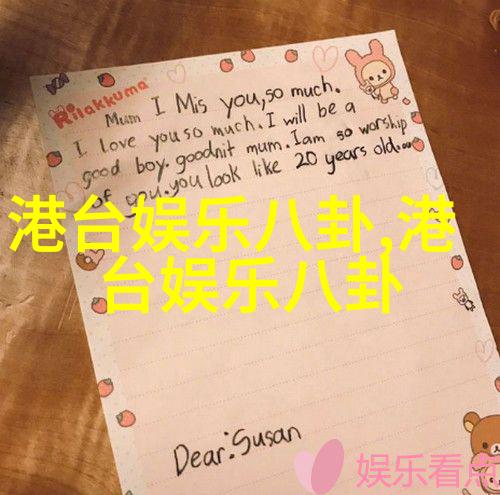 Rilakkuma
Mum I Mis you,so much.
I love you so much. I will be a
good boy. goodnit mum. Iam so worship
of you.you look like 20 years old.
港台娱乐八卦,港
台娱乐八卦
Dear:Susan
娱乐看点